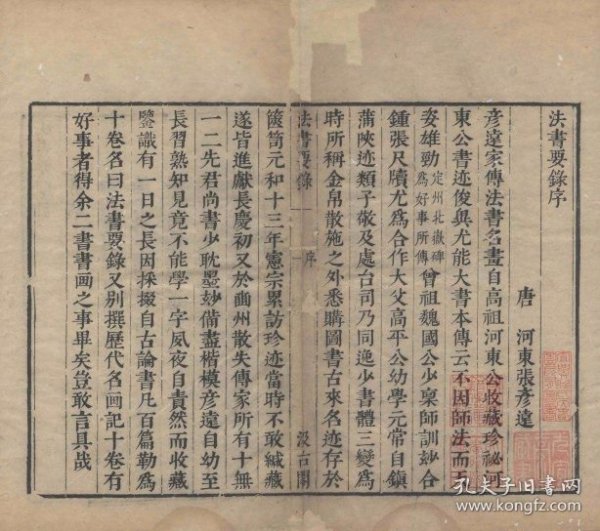 法書要錄序
唐 河東張彥遠
彥遠家傳法書名畫自高祖河東公收藏珍祕河
東公書迹俊異尤能大書本傳云不因師法而天
姿雄勁定州北嶽碑為好事所傳曾祖魏國公少稟師訓妙合
鍾張尺牘尤為合作大父高平公幼學元常自鎮
蒲陝迹類子敬及處台司乃同逸少書體三變為
時所稱金帛散施之外悉購圖書古來名迹存於
法書要錄 序 一 汲古閣
篋笥元和十三年憲宗累訪珍迹當時不敢緘藏
遂皆進獻長慶初又於幽州散失傳家所有十無
一二先君尚書少耽墨妙備盡楷模彥遠自幼至
長習熟知見竟不能學一字夙夜自責然而收藏
鑒識有一日之長因採掇自古論書凡百篇勒為
十卷名曰法書要錄又別撰歷代名畫記十卷有
好事者得余二書書画之事畢矣豈敢言具哉
孔夫子旧书网